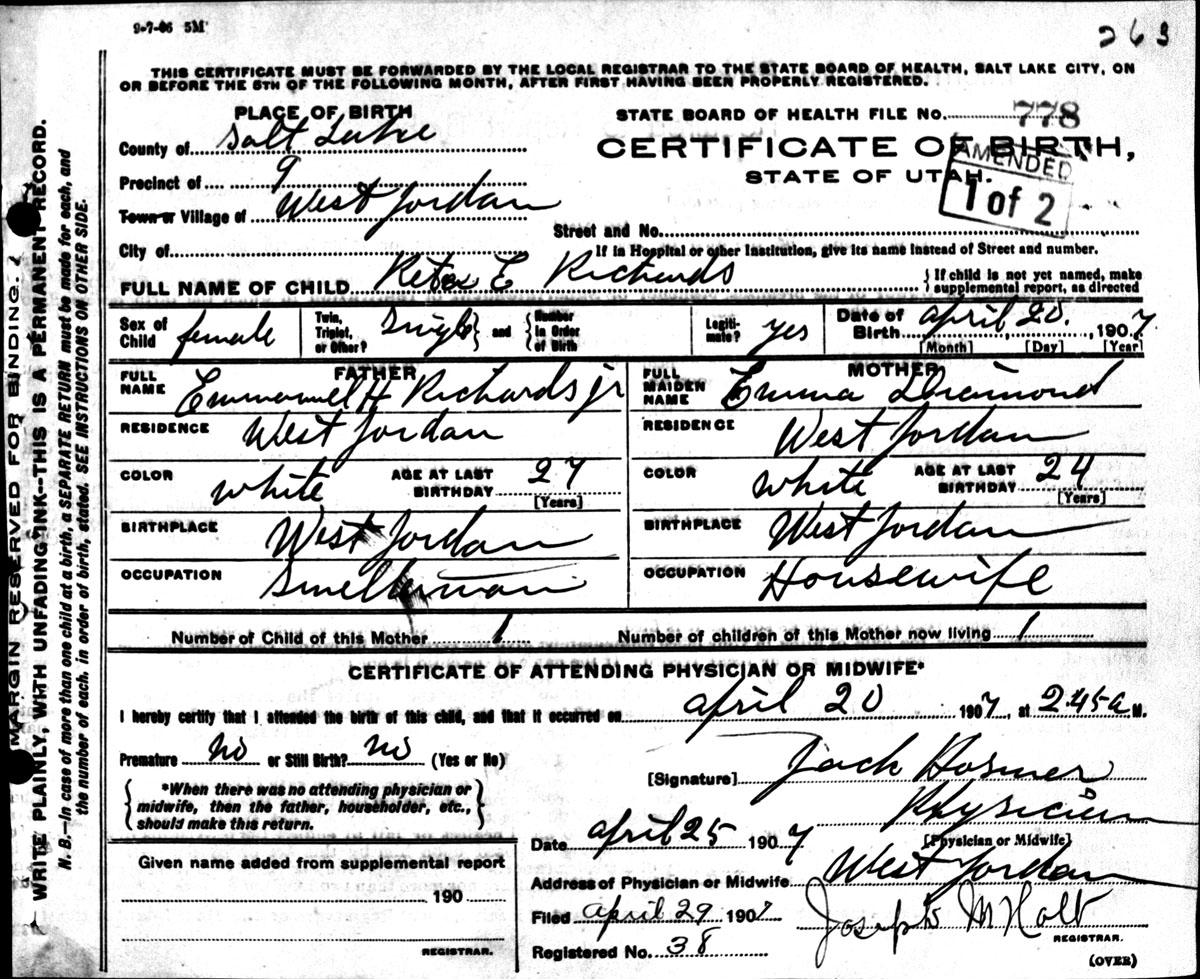 9-7-06 5M
263
THIS CERTIFICATE MUST BE FORWARDED BY THE LOCAL REGISTRAR TO THE STATE BOARD OF HEALTH, SALT LAKE CITY, ON
OR BEFORE THE 5TH OF THE FOLLOWING MONTH, AFTER FIRST HAVING BEEN PROPERLY REGISTERED.
PLACE OF BIRTH
County of Salt Lake
Precinct of 9
Town or Village of West Jordan
City of
STATE BOARD OF HEALTH FILE NO. 778
CERTIFICATE OF BIRTH,
STATE OF UTAH.
AMENDED
1 of 2
Street and No.
If in Hospital or other Institution, give its name instead of Street and number.
FULL NAME OF CHILD Reta E Richards
} If child is not yet named, make
supplemental report, as directed
Sex of Child female
Twin, Triplet, or Other? Single } and { Number in Order of Birth
Legiti-mate? yes
Date of Birth April 20. 1907
[Month] [Day] [Year]
FATHER
FULL NAME Emmanuel H Richards jr
RESIDENCE West Jordan
COLOR white AGE AT LAST BIRTHDAY 27
[Years]
BIRTHPLACE West Jordan
OCCUPATION Smelterman
MOTHER
FULL MAIDEN NAME Emma Diamond
RESIDENCE West Jordan
COLOR white AGE AT LAST BIRTHDAY 24
[Years]
BIRTHPLACE West Jordan
OCCUPATION Housewife
Number of Child of this Mother 1 Number of children of this Mother now living 1
CERTIFICATE OF ATTENDING PHYSICIAN OR MIDWIFE*
I hereby certify that I attended the birth of this child, and that it occurred on April 20 1907, at 2.45 a M.
Premature No or Still Birth? No (Yes or No)
*When there was no attending physician or
midwife, then the father, householder, etc.,
should make this return.
[Signature] Jack Hosmer
Physician
[Physician or Midwife]
Date April 25 1907
Address of Physician or Midwife West Jordan
Filed April 29 1907 Joseph M Holt
REGISTRAR.
Registered No. 38
(OVER)
Given name added from supplemental report
190
REGISTRAR.
MARGIN RESERVED FOR BINDING.
WRITE PLAINLY, WITH UNFADING INK--THIS IS A PERMANENT RECORD.
N. B.--In case of more than one child at a birth, a SEPARATE RETURN must be made for each, and
the number of each, in order of birth, stated. SEE INSTRUCTIONS ON OTHER SIDE.